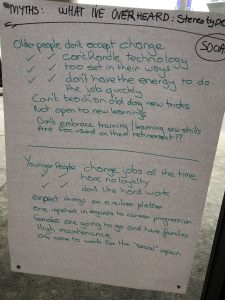 MYTHS: WHAT I'VE OVERHEARD: Stereotype
SOCIA
Older people don't accept change
✓ ✓ can't handle technology
✓ ✓ too set in their ways
✓ ✓ don't have the energy to do
the job quickly
Can't teach an old dog new tricks
Not open to new learnings
Don't embrace training / learning new skills
Are focused on their retirement??
Younger People change jobs all the time
✓ ✓ have no loyalty
✓ ✓ don't like hard work
expect things on a silver platter
are impatient in regards to career progression
females are going to go and have families
High maintenance
Only come to work for the "social" aspect